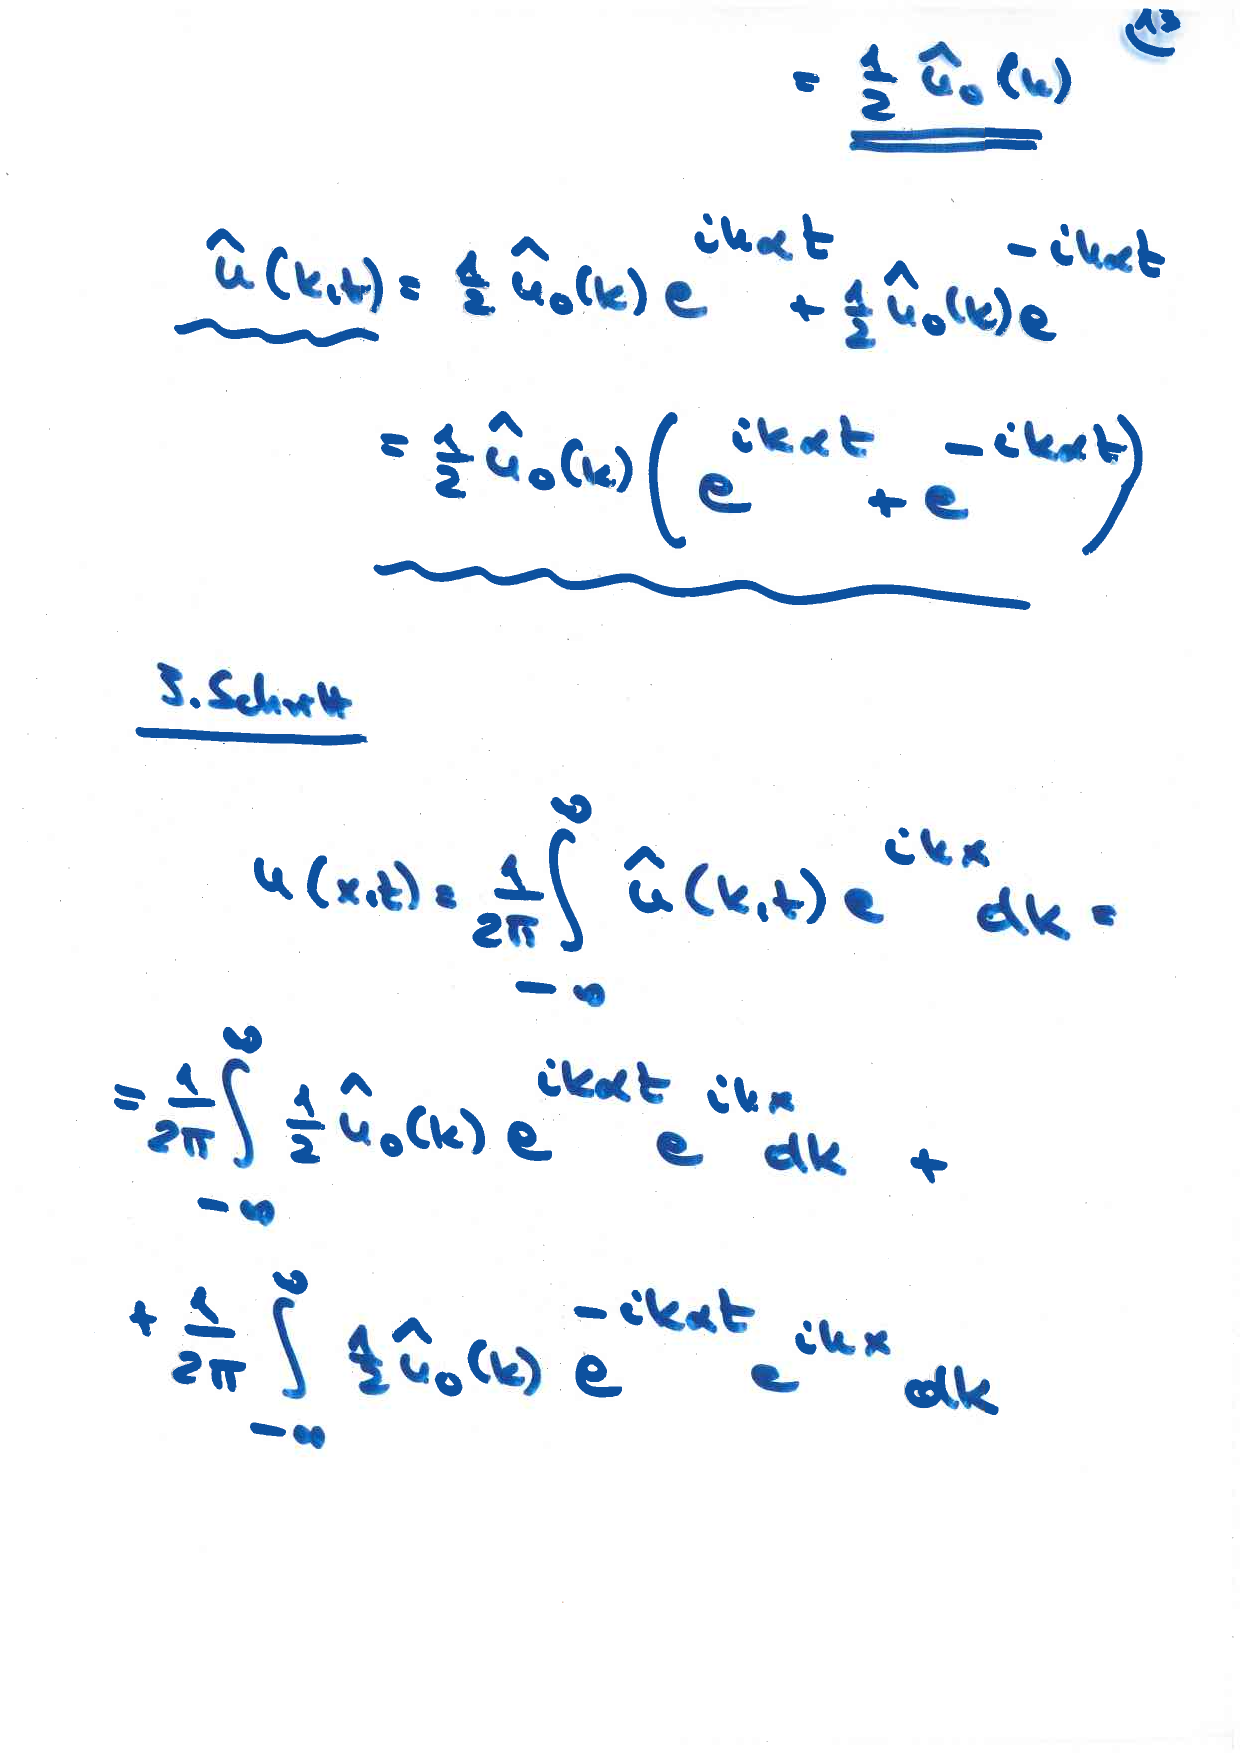 13
= 1/2 û₀(k)
û(k,t) = 1/2 û₀(k) e^{ikαt} + 1/2 û₀(k) e^{-ikαt}
= 1/2 û₀(k) ( e^{ikαt} + e^{-ikαt} )
3. Schritt
u(x,t) = 1/2π ∫_{-∞}^{∞} û(k,t) e^{ikx} dk =
= 1/2π ∫_{-∞}^{∞} 1/2 û₀(k) e^{ikαt} e^{ikx} dk +
+ 1/2π ∫_{-∞}^{∞} 1/2 û₀(k) e^{-ikαt} e^{ikx} dk